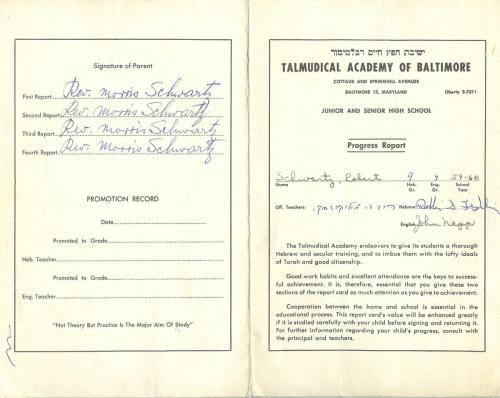 Signature of Parent
First Report Rev. Morris Schwartz
Second Report Rev. Morris Schwartz
Third Report Rev. Morris Schwartz
Fourth Report Rev. Morris Schwartz
PROMOTION RECORD
Date
Promoted to Grade
Heb. Teacher
Promoted to Grade
Eng. Teacher
"Not Theory But Practice Is The Major Aim Of Study"
ישיבת חפץ חיים דבלטימור
TALMUDICAL ACADEMY OF BALTIMORE
COTTAGE AND SPRINGHILL AVENUES
BALTIMORE 15, MARYLAND Liberty 2-7311
JUNIOR AND SENIOR HIGH SCHOOL
Progress Report
Schwartz, Robert 9 9 59-60
Name Heb. Gr. Eng. Gr. School Year
Off. Teachers: Hebrew
English John
The Talmudical Academy endeavors to give its students a thorough
Hebrew and secular training, and to imbue them with the lofty ideals
of Torah and good citizenship.
Good work habits and excellent attendance are the keys to success-
ful achievement. It is, therefore, essential that you give these two
sections of the report card as much attention as you give to achievement.
Cooperation between the home and school is essential in the
educational process. This report card's value will be enhanced greatly
if it is studied carefully with your child before signing and returning it.
For further information regarding your child's progress, consult with
the principal and teachers.